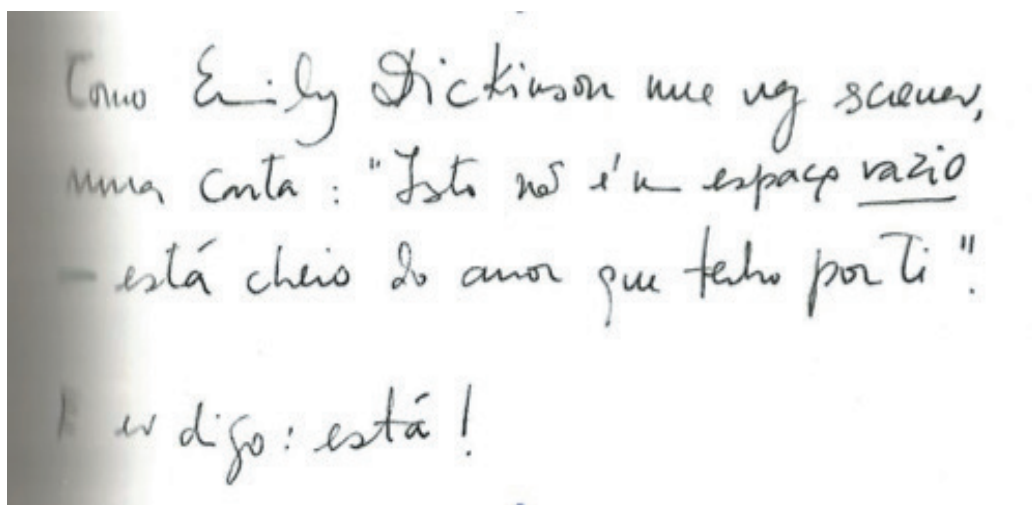 Como Emily Dickinson uma vez escreveu,
numa carta: "Isto não é um espaço vazio
– está cheio do amor que tenho por ti".
E eu digo: está!